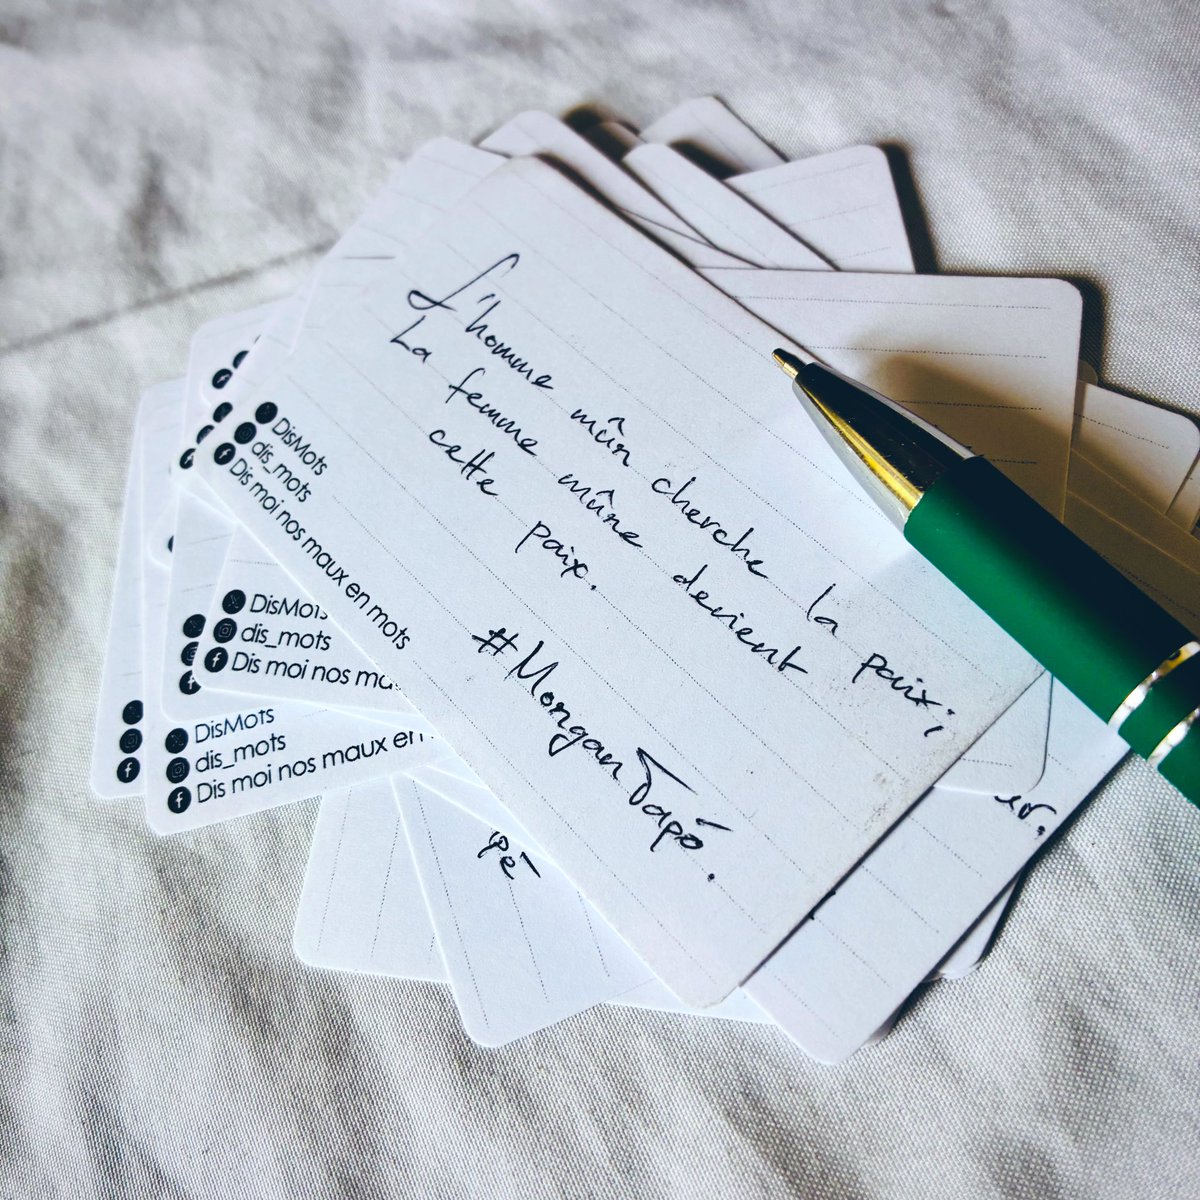 L'homme mûn cherche la paix;
La femme mûne devient
cette paix.
#MorganTapó.
DisMots
dis_mots
Dis moi nos maux en mots
DisMots
dis_mots
Dis moi nos ma
DisMots
dis_mots
Dis moi nos maux en